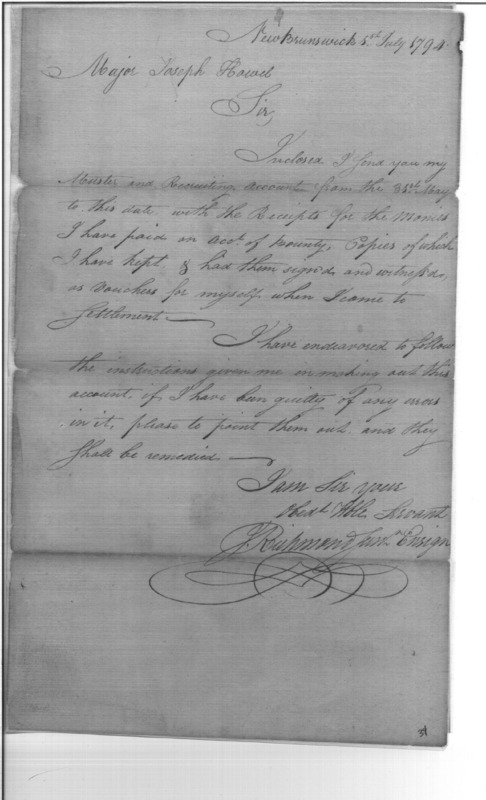 New Brunswick 5th July 1794
Major Joseph Howel
Sir,
Inclosed I send you my
Muster and Recruiting account from the 31st May
to this date with the Receipts for the Monies
I have paid on acct. of bounty, Copies of which
I have kept & had them signed and witnessed,
as vouchers for myself when I come to
Settlement —
I have endeavored to follow
the instructions given me in making out this
account, if I have been guilty of any errors
in it, please to point them out and they
Shall be remedied —
I am Sir your
Obedt. Hble. Servant
Richmond Junr. Ensign
34